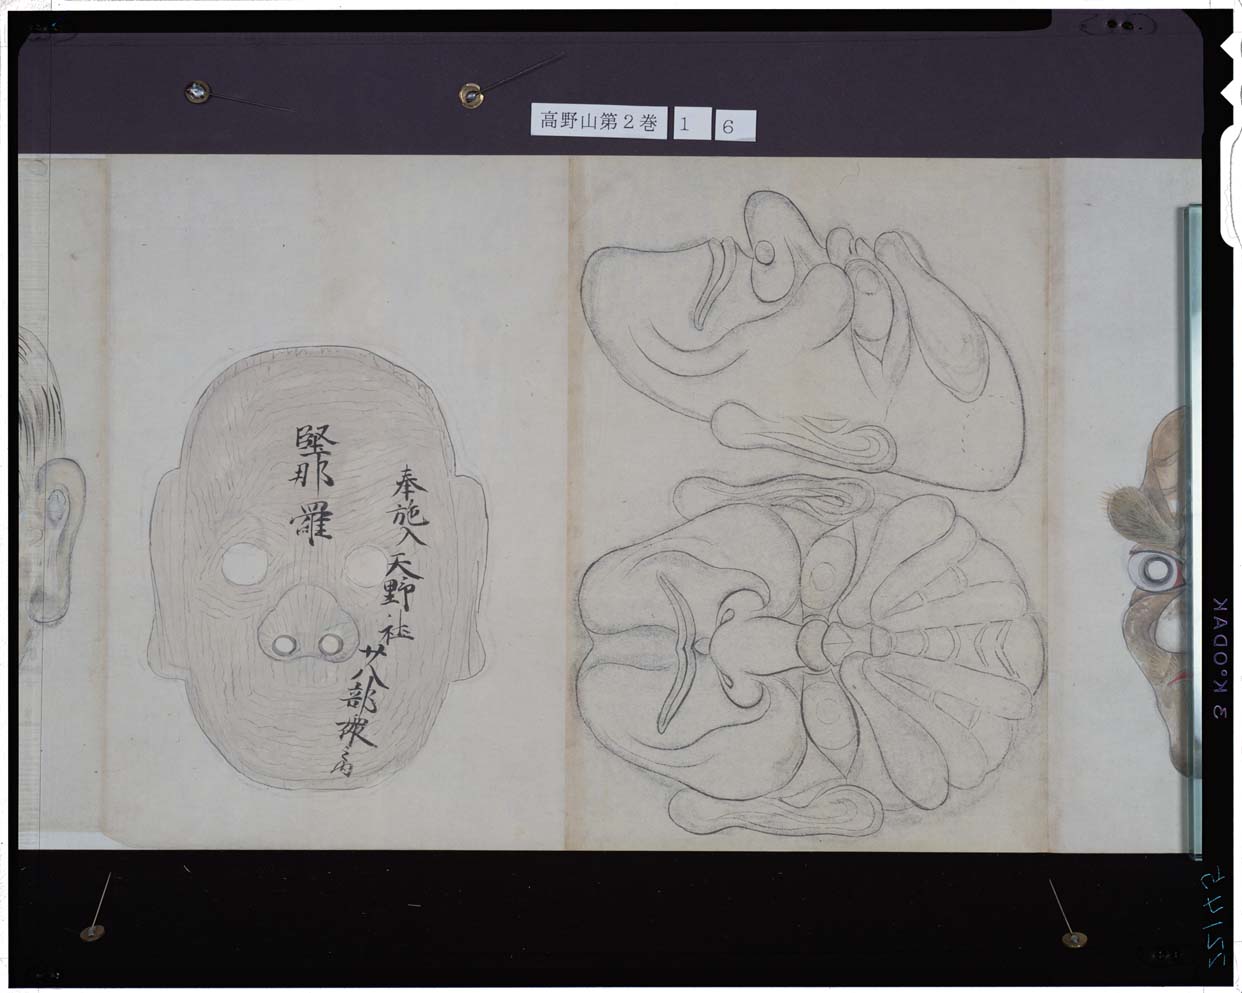 高野山第2巻 1 6
奉施入天野社廿八部衆之内
緊那羅
3 KODAK
22145